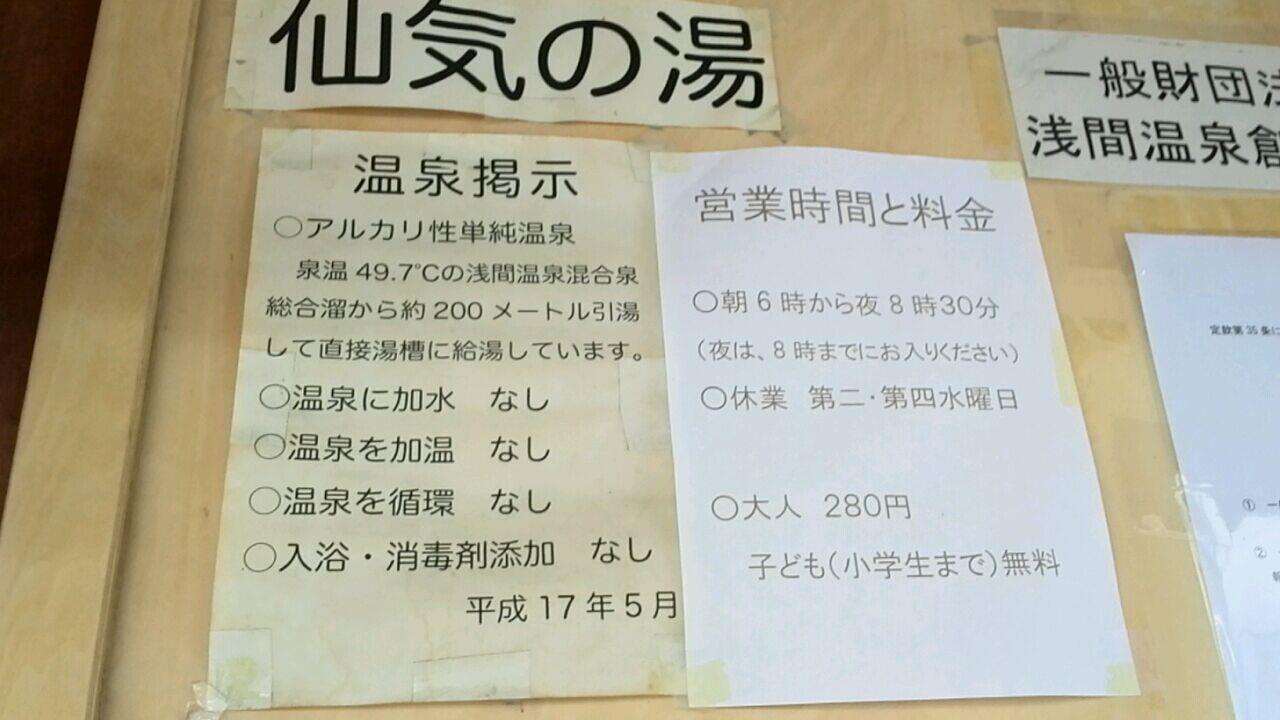 仙気の湯
温泉掲示
○アルカリ性単純温泉
泉温49.7℃の浅間温泉混合泉
総合溜から約200メートル引湯
して直接湯槽に給湯しています。
○温泉に加水 なし
○温泉を加温 なし
○温泉を循環 なし
○入浴・消毒剤添加 なし
平成17年5月
営業時間と料金
○朝6時から夜8時30分
(夜は、8時までにお入りください)
○休業 第二・第四水曜日
○大人 280円
子ども(小学生まで)無料
一般財団法
浅間温泉創
定款第35条に
①
②